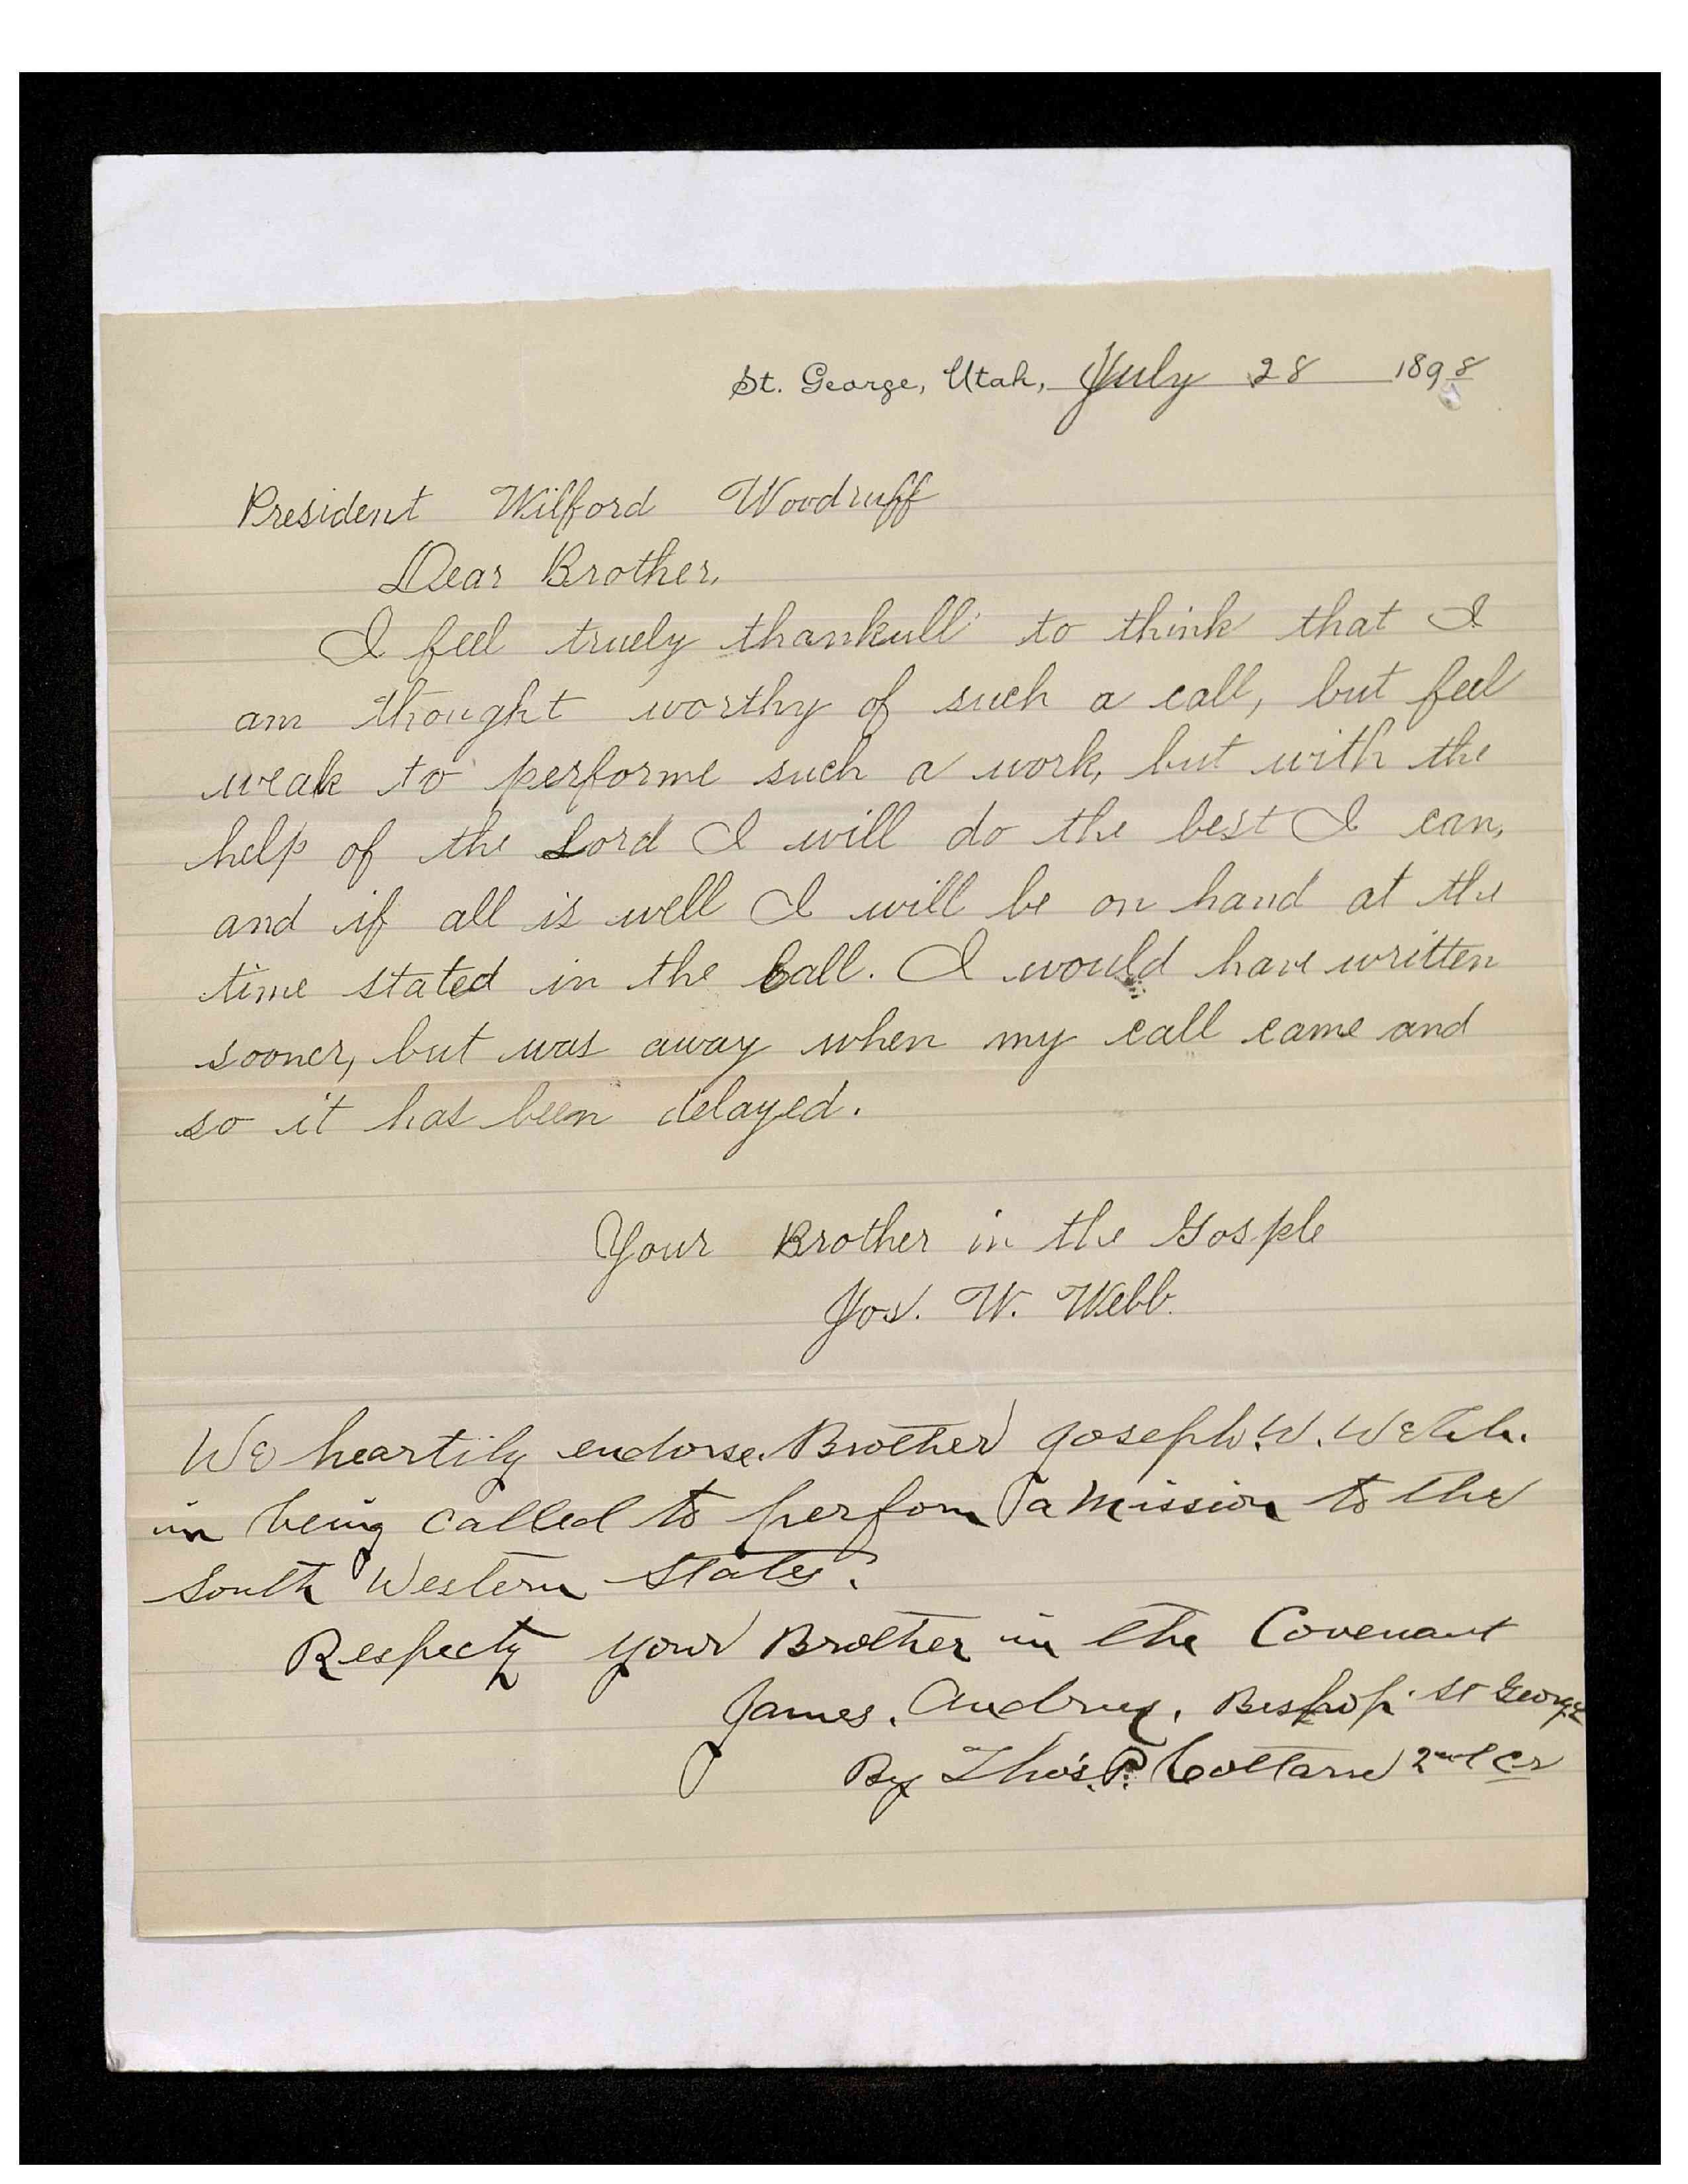 St. George, Utah, July 28 1898
President Wilford Woodruff
Dear Brother,
I feel truely thankull to think that I
am thought worthy of such a call, but feel
weak to performe such a work, but with the
help of the Lord I will do the best I can,
and if all is well I will be on hand at the
time stated in the Call. I would have written
sooner, but was away when my call came and
so it has been delayed.
Your Brother in the Gosple
Jos. W. Webb.
We heartily endorse. Brother Joseph. W. Webb.
in being called to perfom a mission to the
South Western States.
Respecty your Brother in the Covenant
James. Andrus. Bishop. St George
By Thos. P. Cottam 2nd Cr